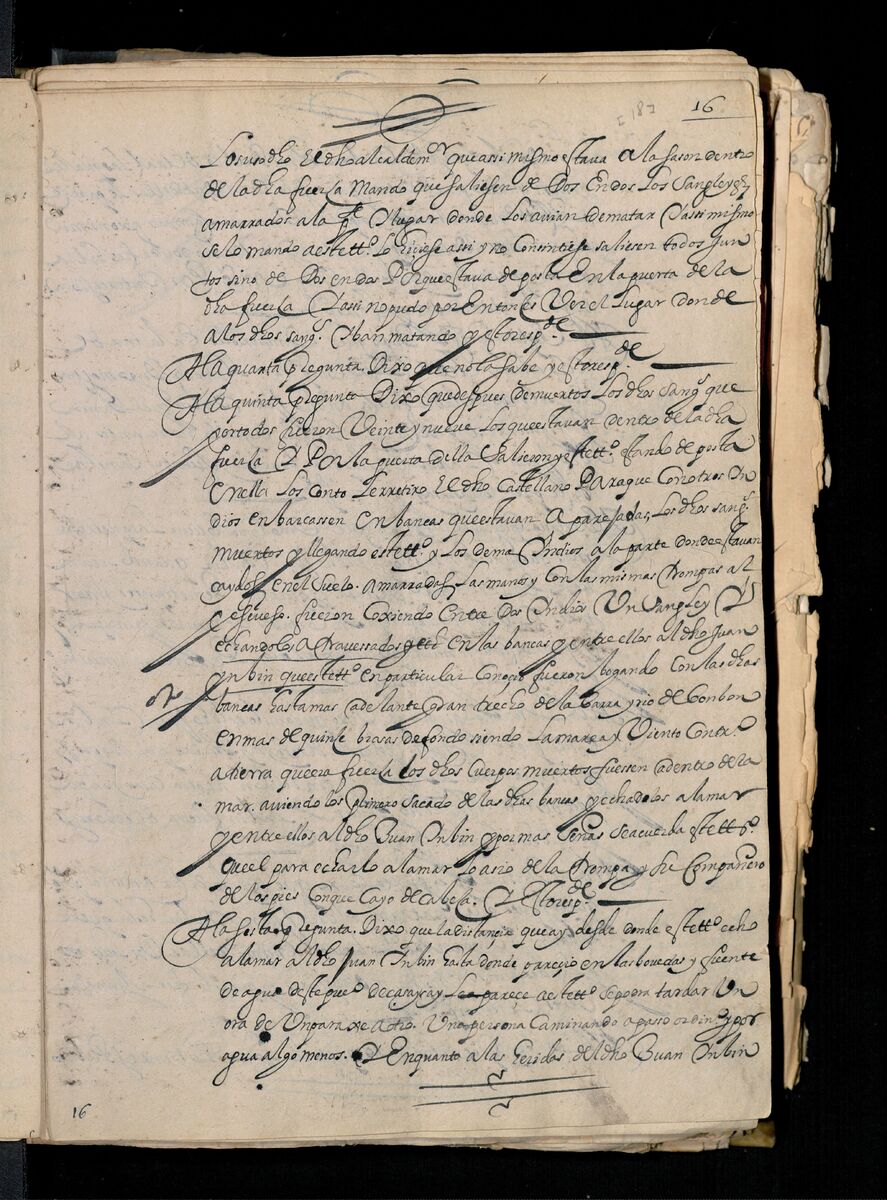 16
[187
Lo susodho El dho alcalde mor que assi mismo estava a la sason dentro
de la dha fuersa Mando que saliesen de Dos En dos Los Sangleyes
amarrados a la Y lugar donde Los avian de matar Y assi mismo
se lo mando a este tto Lo hiciese assi y no Consintiese saliesen todos Jun
tos sino de Dos en dos Porque estava de posta En la puerta de la
dha fuersa Y assi no pudo por Entonses Ver el Lugar donde
a los dhos sangs Yban matando y esto respde
A la quarta pregunta Dixo que no la sabe y esto respde
A la quinta pregunta Dixo que despues de muertos Los dhos sangs que
por todos fueron Veinte y nueve Los que estavan dentro de la dha
fuersa Y Por la puerta della Salieron y este tto stando de posta
En ella Los Conto Le rretiro El dho Castellano Para que Con otros In
dios enbarcassen en bancas que estavan aparejadas, Los dhos sangs
muertos y llegando este tto y Los dema Indios a la parte donde estavan
caydos en el suelo. amarradas Las manos y Con las mismas trompas al
pescueso. fueron Coxiendo Entre Dos Indios Un Sangley Y
echandolos atravessados en las bancas y entre ellos al dho Juan
ynbin que este tto en particular Conoçio fueron bogando Con las dhas
ojo
bancas hasta mas adelante gran trecho de la barra y rio de Bonbon
en mas de quinse brasas de fondo siendo La marea y Viento Contro
a tierra que era fuersa Los dhos Cuerpos muertos fuessen adentro de la
mar. aviendolos Primero sacado de las dhas bancas y echadolos a la mar
y entre ellos al dho Juan Inbin y por mas señas se acuerda este tto
que el para echarlo a la mar Lo asio de la trompa y su Compañero
de los pies Con que Cayo de Cabesa. Y Esto respde
A la sesta pregunta. Dixo que la distançia que ay desde donde este tto echo
a la mar al dho Juan Inbin hasta donde pareçio en las bovedas y fuente
de agua deste pueo de casaysay Le pareçe a este tto se podra tardar Un
ora de Un paraxe a otro. Una persona Caminando a passo ordino y por
agua algo menos. Y En quanto a las heridas del dho Juan Inbin
16